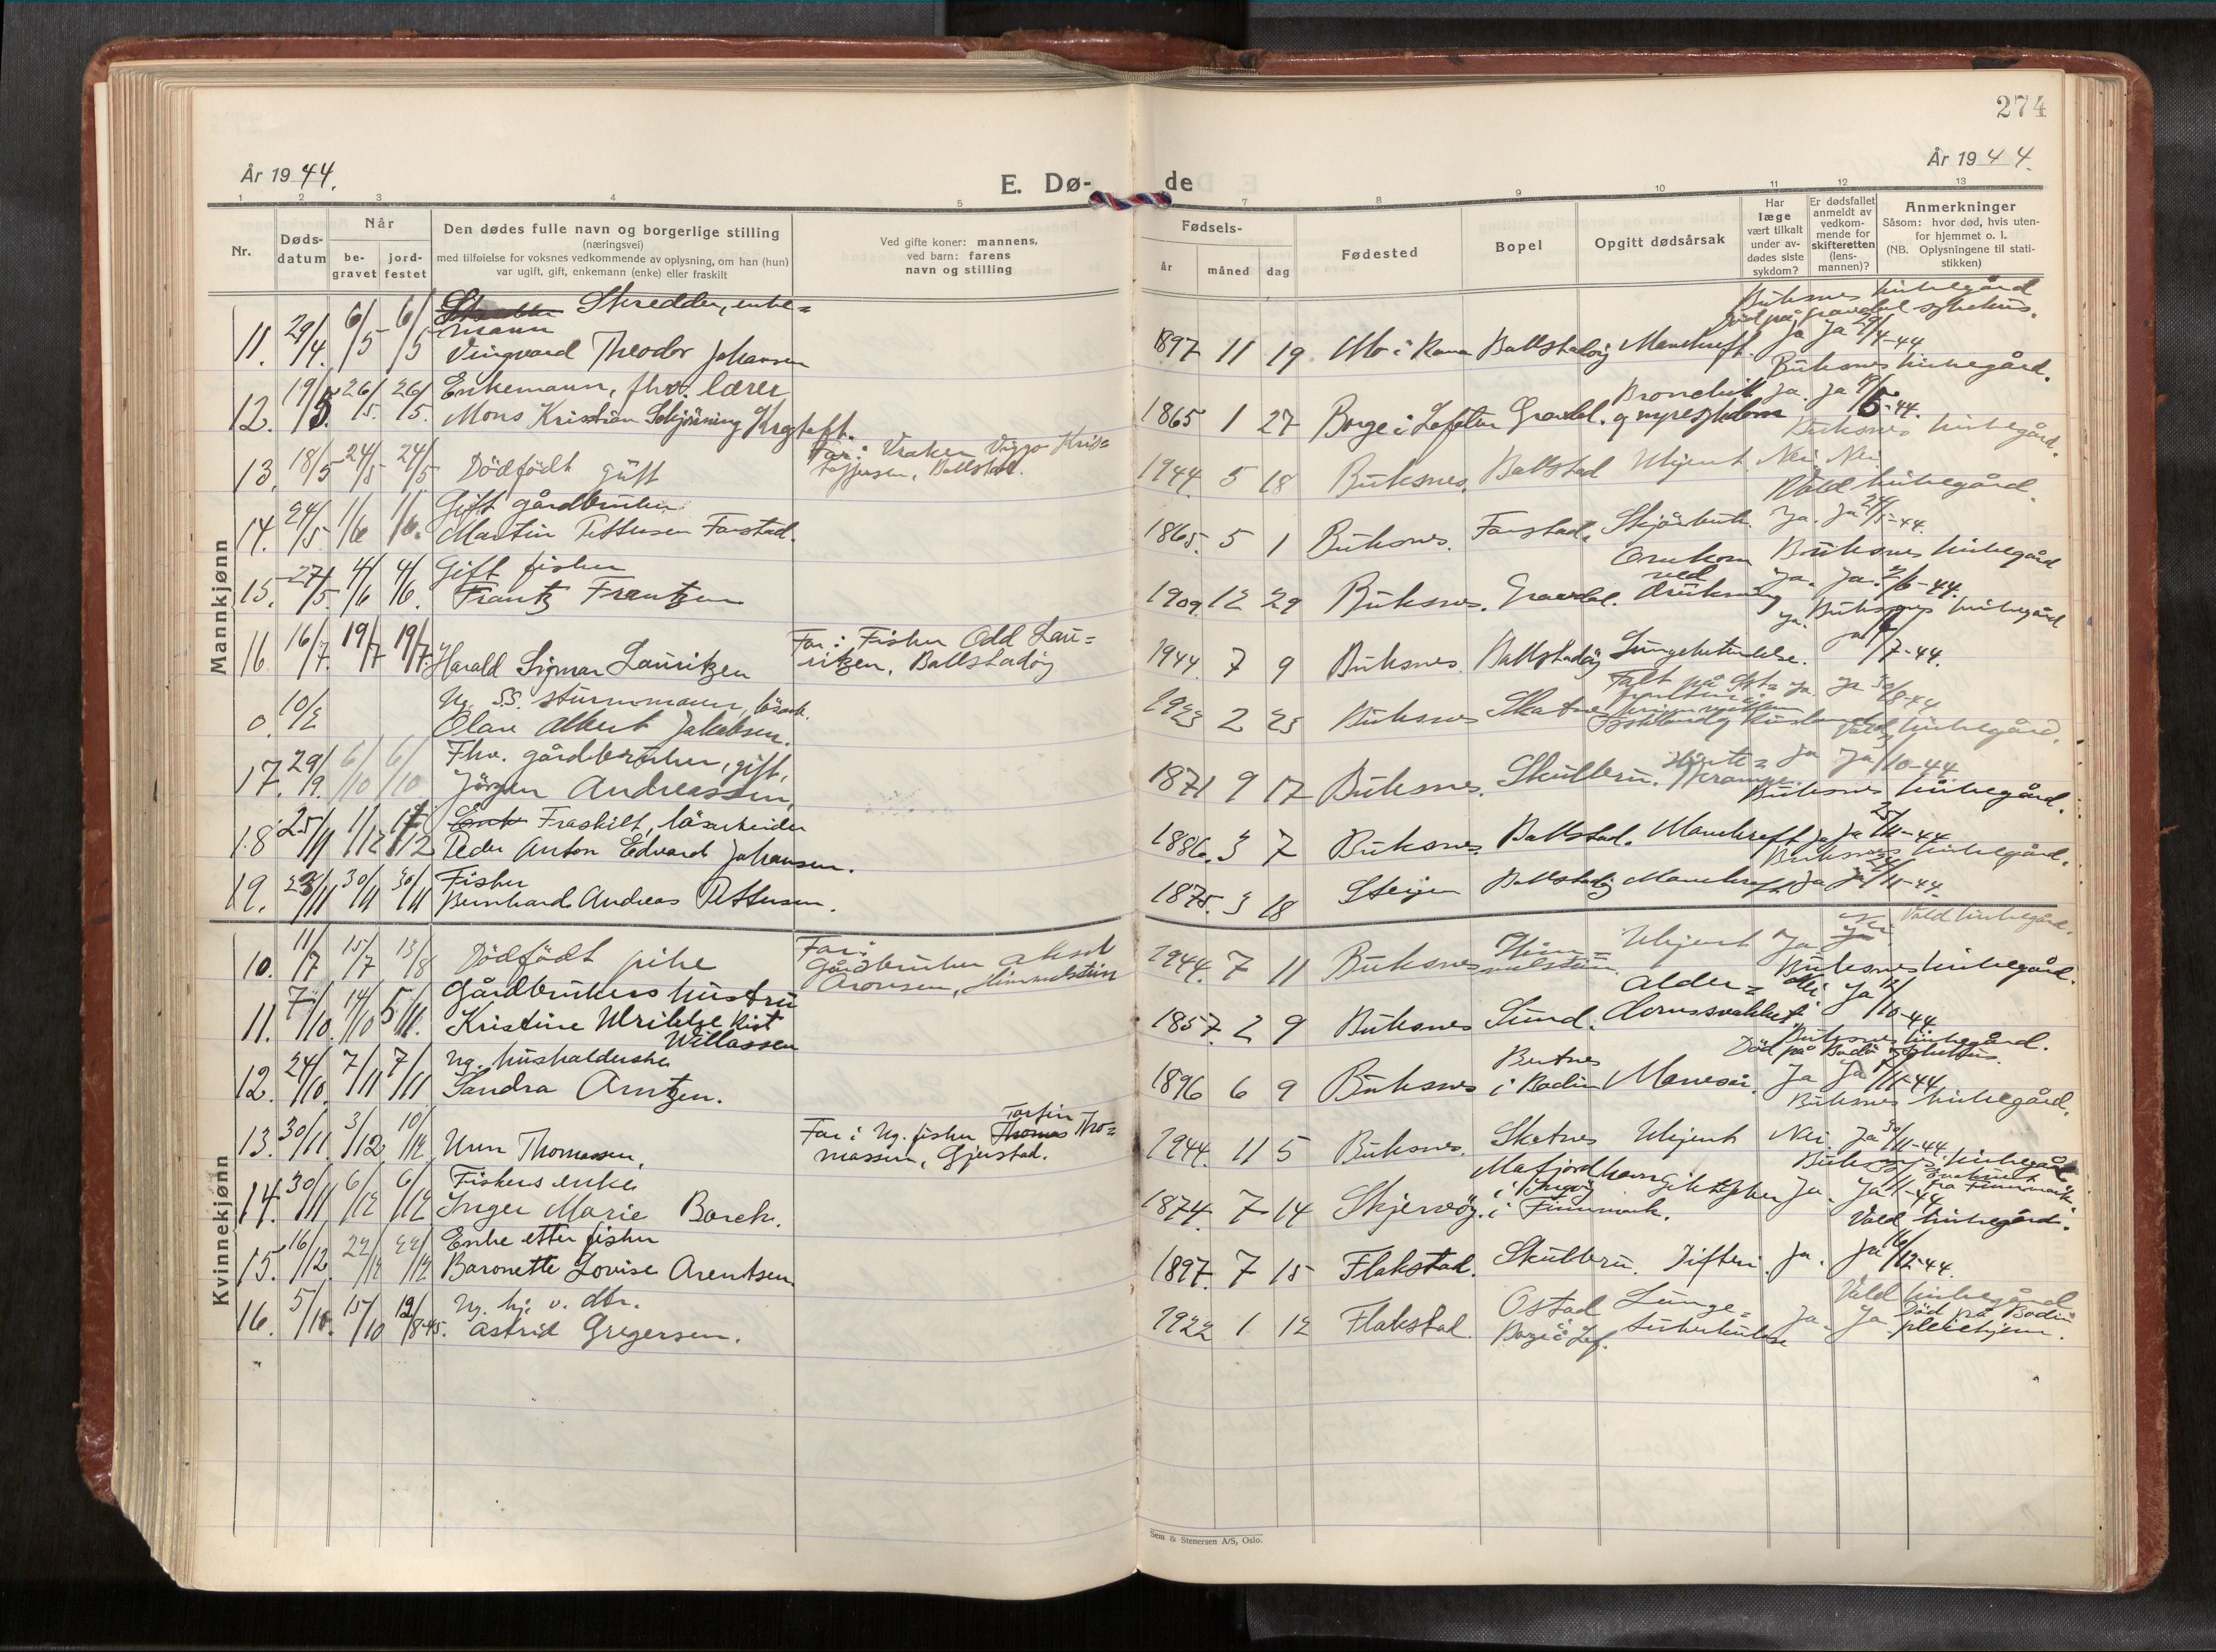 274
År 1944.
År 1944.
E. Dø-
de
1 2 3 4 5 7 8 9 10 11 12 13
Nr.
Døds-
datum
Når
be-
gravet
jord-
festet
Den dødes fulle navn og borgerlige stilling
(næringsvei)
med tilføielse for voksnes vedkommende av oplysning, om han (hun)
var ugift, gift, enkemann (enke) eller fraskilt
Ved gifte koner: mannens,
ved barn: farens
navn og stilling
Fødsels-
år
måned
dag
Fødested
Bopel
Opgitt dødsårsak
Har
læge
vært tilkalt
under av-
dødes siste
sykdom?
Er dødsfallet
anmeldt av
vedkom-
mende for
skifteretten
(lens-
mannen)?
Anmerkninger
Såsom: hvor død, hvis uten-
for hjemmet o. l.
(NB. Oplysningene til stati-
stikken)
Mannkjønn
Skredder, enke=
mann
Buksnes kirkegård
Død på Gravdal sykehus.
11. 29/4. 6/5 6/5 Vingvard Theodor Johansen 1897 11 19 Mo i Rana Ballstadøy Mavekreft. Ja Ja 29/4-44
Enkemann, fhv. lærer
Buksnes kirkegård.
12. 19/5. 26/5. 26/5. Mons Kristian Schjöning Krogtoft. 1865 1 27 Borge i Lofoten Gravdal. Bronchit og nyresykdom Ja. Ja /5-44.
Buksnes kirkegård.
13. 18/5 24/5 24/5 Dödfödt gutt Far: Vraker Viggo Kris=
toffersen, Ballstad.
1944. 5 18 Buksnes. Ballstad Ukjent Nei Nei
Gift gårdbruker
Vold kirkegård.
14. 24/5 1/6 1/6. Martin Pettersen Farstad. 1865. 5 1 Buksnes. Farstad. Ja. Ja 24/5-44.
Gift fisker
Buksnes kirkegård
15. 27/5. 4/6 4/6. Frantz Frantzen 1909. 12 29 Buksnes. Gravdal. Omkom ved drukning Ja. Ja. 2/6-44.
Buksnes kirkegård
16 16/7. 19/7 19/7. Harald Sigmar Lauritzen Far: Fisker Odd Lau=
ritzen, Ballstadøy
1944 7 9 Buksnes Ballstadøy Lungebetendelse. Ja. Ja /7-44.
Ug. S.S. sturmmann, lösarb.
0. 10/2 Olav Albert Jakobsen. 1923 2 23 Buksnes Skatnes Falt på Öst=
Ja. Ja 30/8-44
Fhv. gårdbruker, gift,
Vold kirkegård.
17. 29/9. 6/10 6/10 Jörgen Andreassen, 1871 9 17 Buksnes. Skulbru. Hjerte=
krampe. Ja Ja /10-44
Fraskilt, lösarbeider
Buksnes kirkegård.
18. 25/11 1/12 1/12 Peder Anton Edvard Johansen. 1886. 3 7 Buksnes. Ballstad. Mavekreft Ja Ja 25/11-44
Fisker
Buksnes kirkegård.
19. 23/11 30/11 30/11 Bernhard Andreas Pettersen. 1875. 3 18 Steigen Ballstadøy Mavekreft Ja Ja /11-44.
Kvinnekjønn
Vold kirkegård.
10. 11/7 15/7 13/8 Dödfödt pike Far:
Gårdbruker Aksel
Aronsen, Himmelstein
1944. 7 11 Buksnes Him=
melstein. Ukjent Ja Nei
Gårdbrukers hustru
Buksnes kirkegård.
11. 7/10. 14/10 5/11. Kristine Ulrikke Rist
Willassen
1857. 2 9 Buksnes Sund. Alder=
domssvakhet Nei. Ja /10-44.
Ug. husholderske
Buksnes kirkegård.
Död på Bodö sykehus.
12. 24/10. 7/11 7/11 Sandra Arntzen. 1896 6 9 Buksnes Bertnes
i Bodin Mavesår. Ja Ja /11-44.
Buksnes kirkegård.
13. 30/11. 3/12 10/12 Unn Thomassen. Far: Ug. fisker Torfin Tho=
massen, Gjerstad.
1944. 11 5 Buksnes. Skatnes Ukjent Nei Ja 30/11-44.
Fiskers enke
Buksnes kirkegård
Evakuert
fra Finnmark.
14. 30/11 6/12 6/12 Inger Marie Borch. 1874. 7 14 Skjervöy. Mafjordhavn
i Ingøy
i Finnmark. Ja. Ja /11-44
Enke etter fisker
Vold kirkegård.
15. 16/12. 22/12 22/12 Baronette Lovise Arentsen 1897. 7 15 Flakstad. Skulbru. Difteri. Ja. Ja /12-44.
Ug. hj. v. dtr.
Vold kirkegård
16. 5/10. 15/10 19/8-45. Astrid Gregersen. 1922 1 12 Flakstad Ostad
Borge i Lof. Lunge=
tuberkulose Ja. Ja Död på Bodin
pleiehjem.
Sem & Stenersen A/S, Oslo.